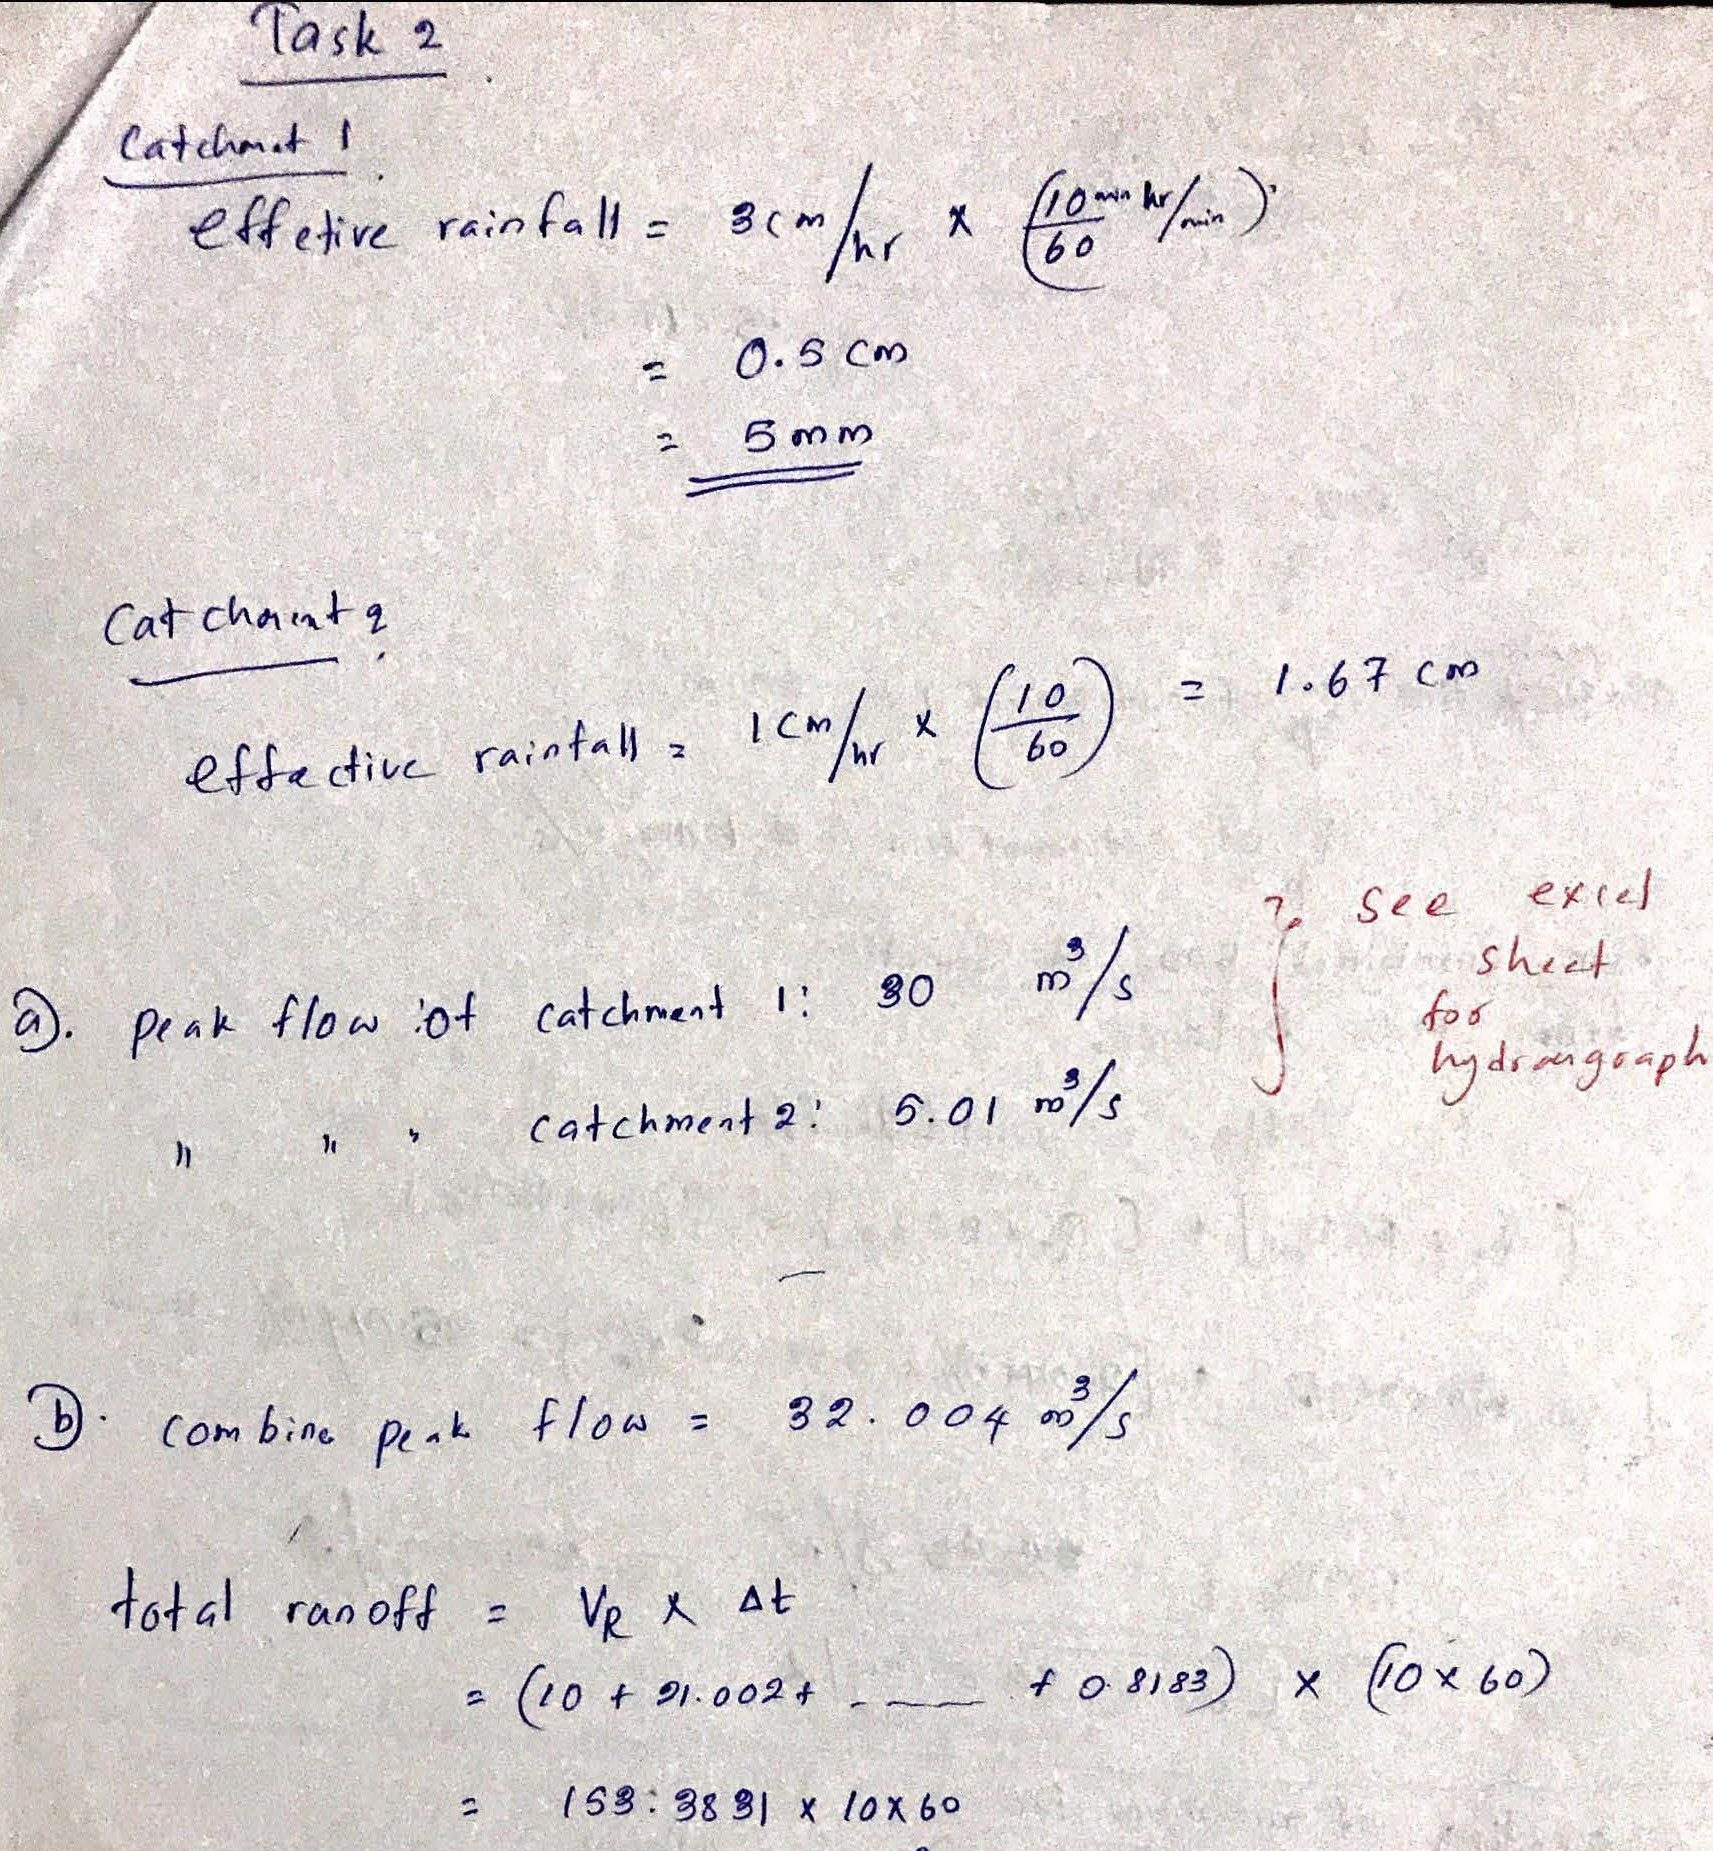 Task 2
Catchment 1
effetive rainfall = 3cm/hr x (10 min/60 hr/min)
= 0.5 cm
= 5 mm
Catchment 2
effective rainfall = 1 cm/hr x (10/60) = 1.67 cm
a). peak flow of catchment 1: 30 m³/s
" " " catchment 2: 5.01 m³/s
} see excel
sheet
for
hydrangraph
b). combine peak flow = 32.004 m³/s
total runoff = VR x Δt
= (10 + 21.002 + ---- + 0.8183) x (10 x 60)
= 153.3831 x 10 x 60